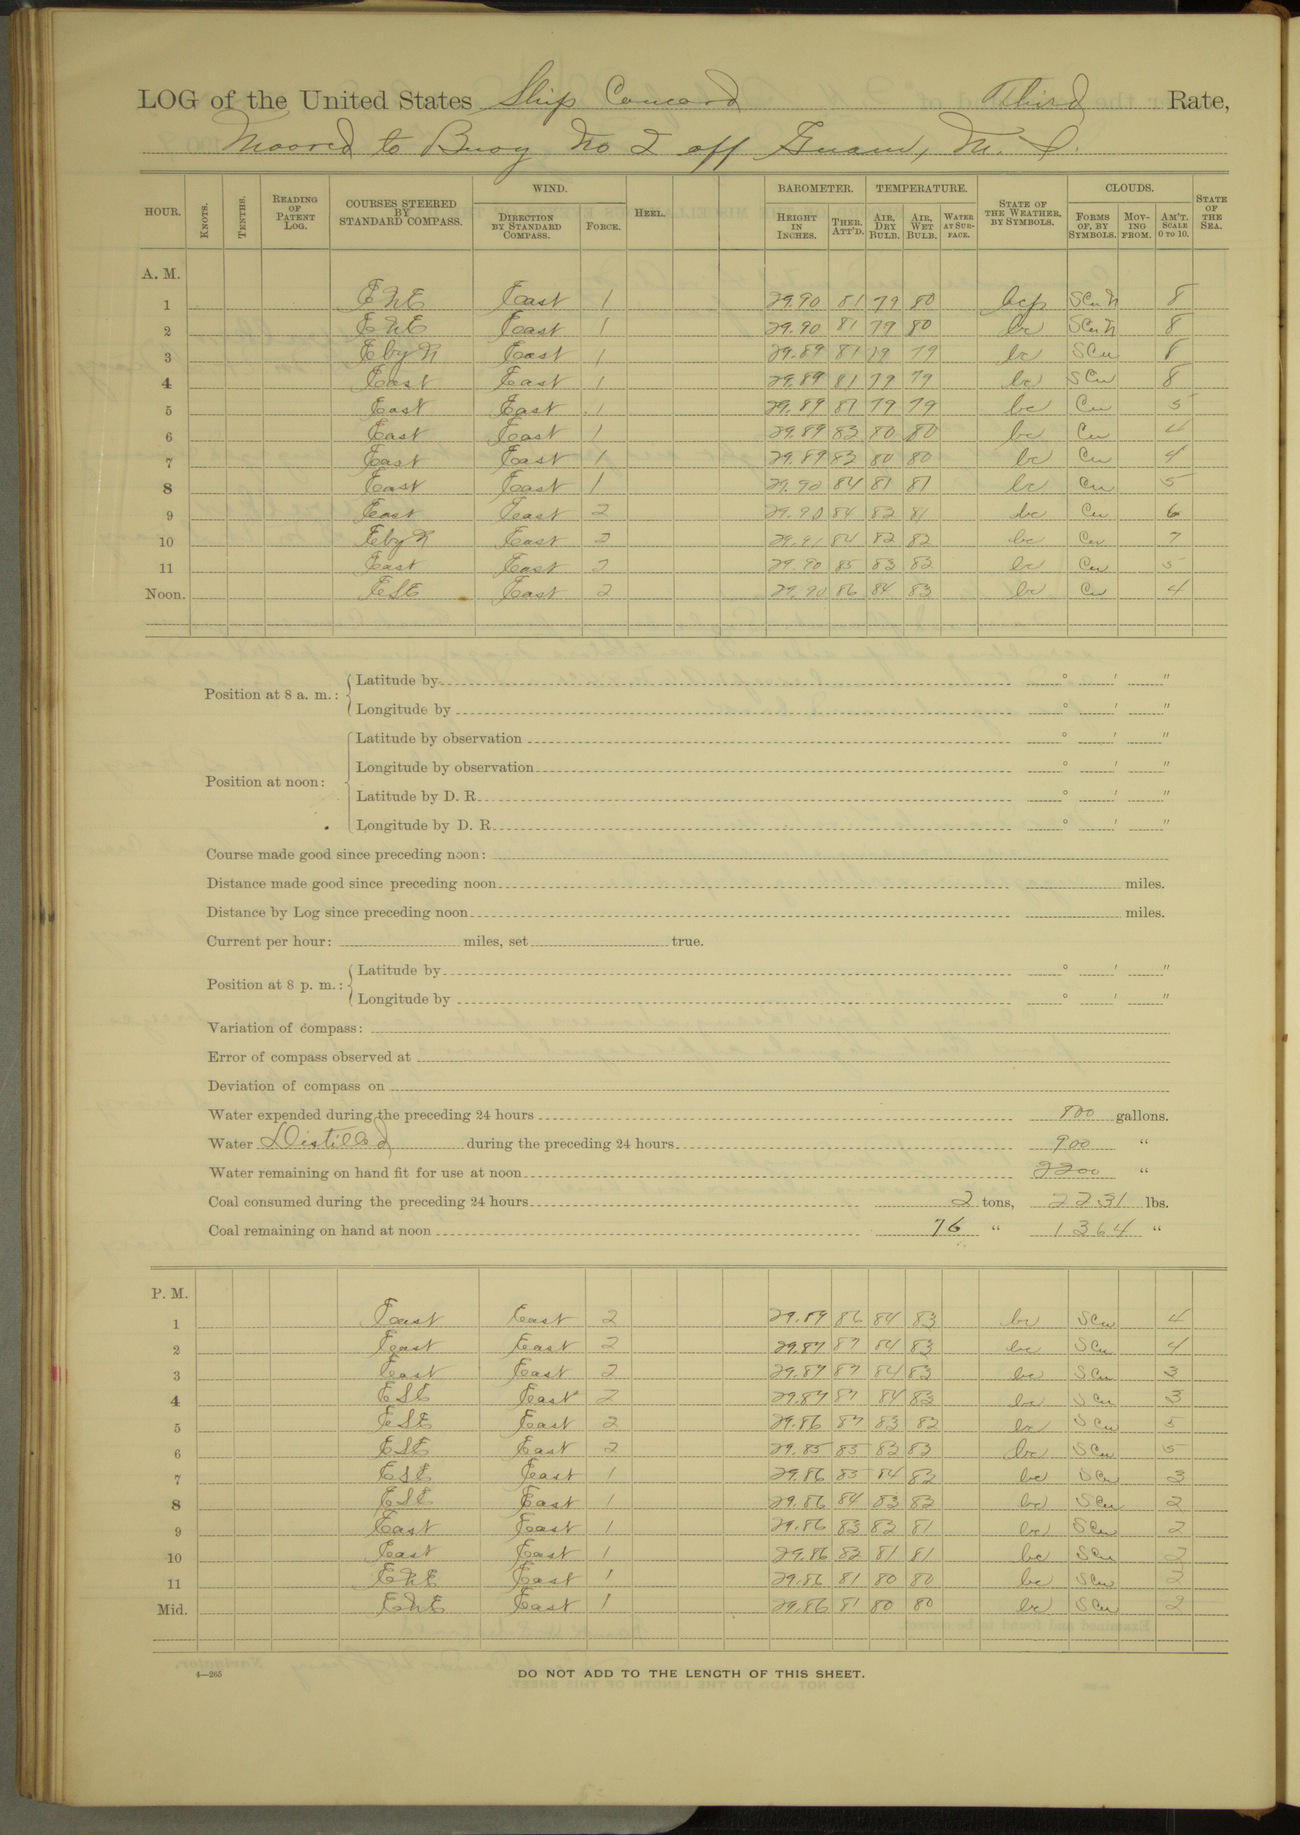 LOG of the United States Ship Concord Third Rate,
Moored to Buoy No 2 off Guam, M. I.
HOUR. KNOTS. TENTHS. READING OF PATENT LOG. COURSES STEERED BY STANDARD COMPASS. WIND. DIRECTION BY STANDARD COMPASS. FORCE. HEEL. BAROMETER. HEIGHT IN INCHES. THER. ATT'D. TEMPERATURE. AIR, DRY BULB. AIR, WET BULB. WATER AT SURFACE. STATE OF THE WEATHER, BY SYMBOLS. CLOUDS. FORMS OF, BY SYMBOLS. MOVING FROM. AM'T. SCALE 0 TO 10. STATE OF THE SEA.
A. M.
1 ENE East 1 29.90 81 79 80 bcp SCuN 8
2 ENE East 1 29.90 81 79 80 bc SCuN 8
3 EbyN East 1 29.89 81 79 79 bc SCu 8
4 East East 1 29.89 81 79 79 bc SCu 8
5 East East 1 29.89 81 79 79 bc Cu 5
6 East East 1 29.89 83 80 80 bc Cu 4
7 East East 1 29.89 83 80 80 bc Cu 4
8 East East 1 29.90 84 81 81 bc Cu 5
9 East East 2 29.90 84 82 81 bc Cu 6
10 EbyN East 2 29.91 84 82 82 bc Cu 7
11 East East 2 29.90 85 83 82 bc Cu 5
Noon. ESE East 2 29.90 86 84 83 bc Cu 4
Position at 8 a. m.: Latitude by ° ′ ″
Longitude by ° ′ ″
Position at noon: Latitude by observation ° ′ ″
Longitude by observation ° ′ ″
Latitude by D. R. ° ′ ″
Longitude by D. R. ° ′ ″
Course made good since preceding noon:
Distance made good since preceding noon miles.
Distance by Log since preceding noon miles.
Current per hour: miles, set true.
Position at 8 p. m.: Latitude by ° ′ ″
Longitude by ° ′ ″
Variation of compass:
Error of compass observed at
Deviation of compass on
Water expended during the preceding 24 hours 800 gallons.
Water Distilled during the preceding 24 hours 900 “
Water remaining on hand fit for use at noon 2200 “
Coal consumed during the preceding 24 hours 2 tons, 2231 lbs.
Coal remaining on hand at noon 76 “ 1364 “
P. M.
1 East East 2 29.89 86 84 83 bc SCu 4
2 East East 2 29.87 87 84 83 bc SCu 4
3 East East 2 29.87 87 84 83 bc SCu 3
4 ESE East 2 29.87 87 84 83 bc SCu 3
5 ESE East 2 29.86 87 83 82 bc SCu 5
6 ESE East 2 29.85 85 83 83 bc SCu 5
7 ESE East 1 29.86 85 84 82 bc SCu 3
8 ESE East 1 29.86 84 83 82 bc SCu 2
9 East East 1 29.86 83 82 81 bc SCu 2
10 East East 1 29.86 82 81 81 bc SCu 2
11 ENE East 1 29.86 81 80 80 bc SCu 2
Mid. ENE East 1 29.86 81 80 80 bc SCu 2
4—265
DO NOT ADD TO THE LENGTH OF THIS SHEET.